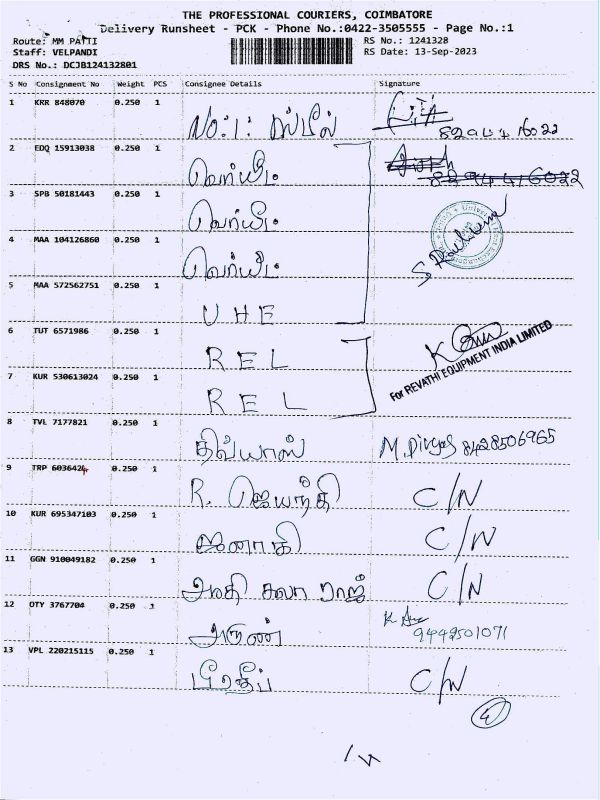 THE PROFESSIONAL COURIERS, COIMBATORE
Delivery Runsheet - PCK - Phone No.:0422-3505555 - Page No.:1
Route: MM PATTI
RS No.: 1241328
Staff: VELPANDI
RS Date: 13-Sep-2023
DRS No.: DCJB124132801
S No Consignment No Weight PCS Consignee Details Signature
1 KRR 848070 0.250 1
No: 1:
2 EDQ 15913038 0.250 1
3 SPB 50181443 0.250 1
4 MAA 104126860 0.250 1
5 MAA 572562751 0.250 1
UHE
6 TUT 6571986 0.250 1
REL
For REVATHI EQUIPMENT INDIA LIMITED
7 KUR 530613024 0.250 1
REL
8 TVL 7177821 0.250 1
திவ்யாஸ் 8428506965
9 TRP 603642 0.250 1
R. ஜெயந்தி C/N
10 KUR 695347103 0.250 1
ஜனாகி C/N
11 GGN 910049182 0.250 1
கலா ராஜ் C/N
12 OTY 3767704 0.250 1
அருண் 9442501071
13 VPL 220215115 0.250 1
பிரதீப் C/N